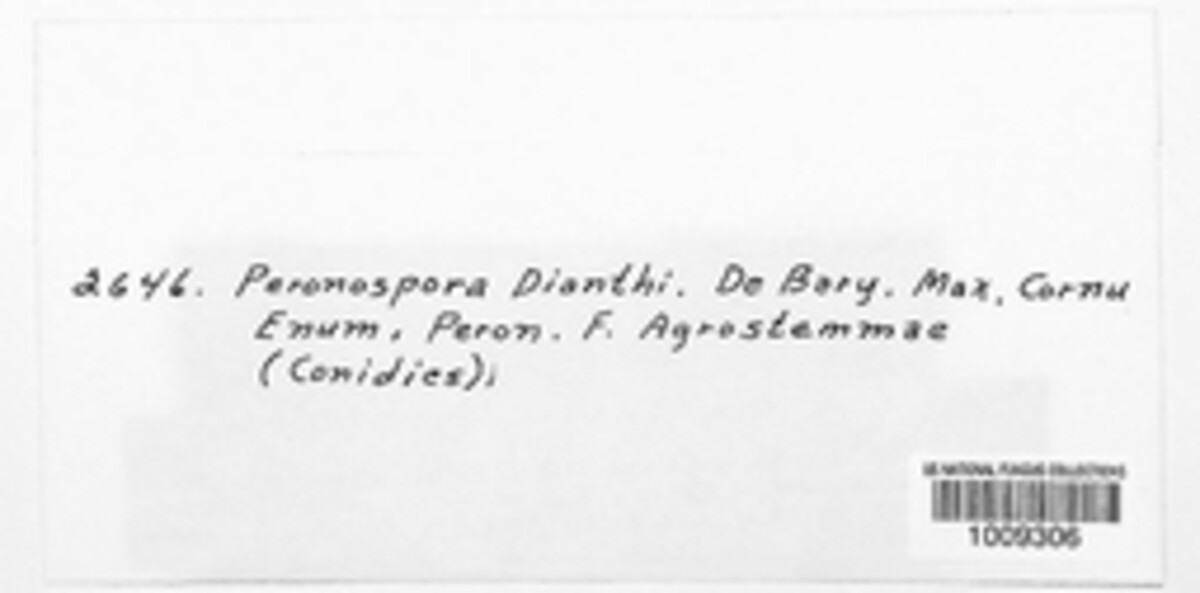 2646. Peronospora Dianthi. De Bary. Max, Cornu
Enum, Peron. F. Agrostemmae
(Conidies);
US NATIONAL FUNGUS COLLECTIONS
1009306